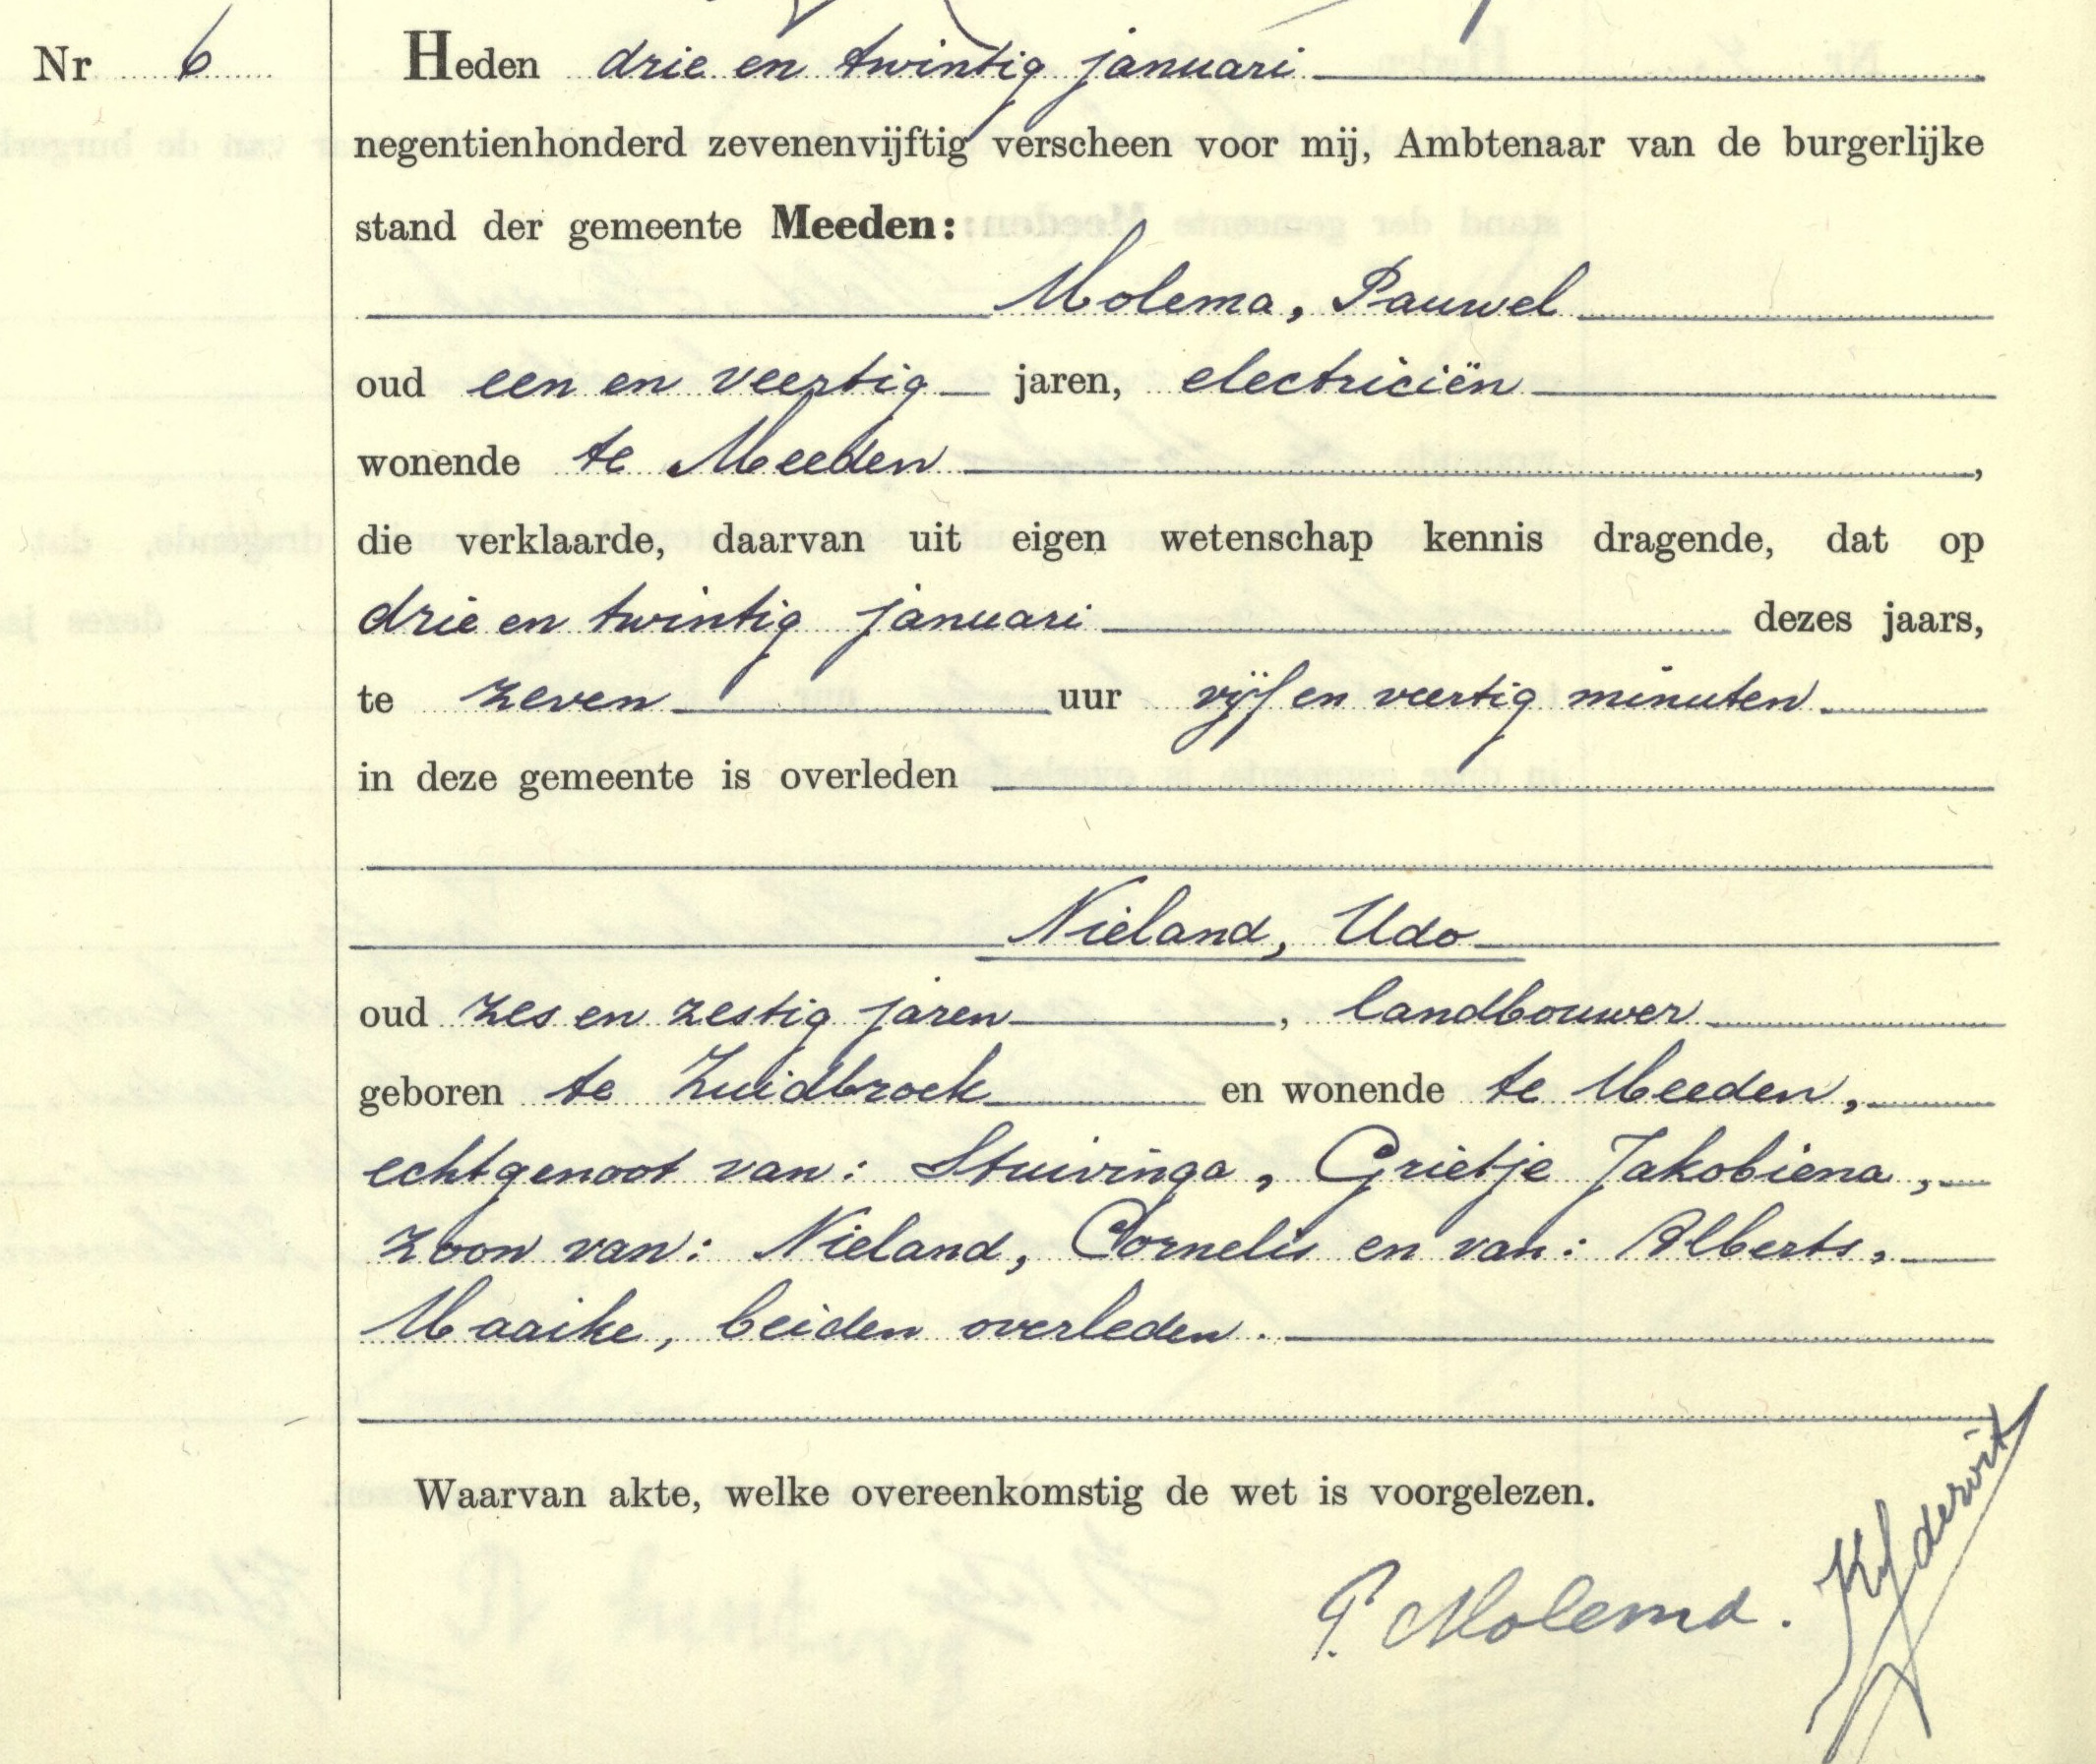 Nr 6
Heden drie en twintig januari
negentienhonderd zevenenvijftig verscheen voor mij, Ambtenaar van de burgerlijke
stand der gemeente Meeden:
Molema, Pauwel
oud een en veertig jaren, electriciën
wonende te Meeden,
die verklaarde, daarvan uit eigen wetenschap kennis dragende, dat op
drie en twintig januari dezes jaars,
te zeven uur vijf en veertig minuten.
in deze gemeente is overleden
Nieland, Udo
oud zes en zestig jaren, landbouwer
geboren te Zuidbroek en wonende te Meeden,
echtgenoot van: Stuivinga, Grietje Jakobiena,
zoon van: Nieland, Cornelis en van: Alberts,
Maaike, beiden overleden.
Waarvan akte, welke overeenkomstig de wet is voorgelezen.
P. Molema.